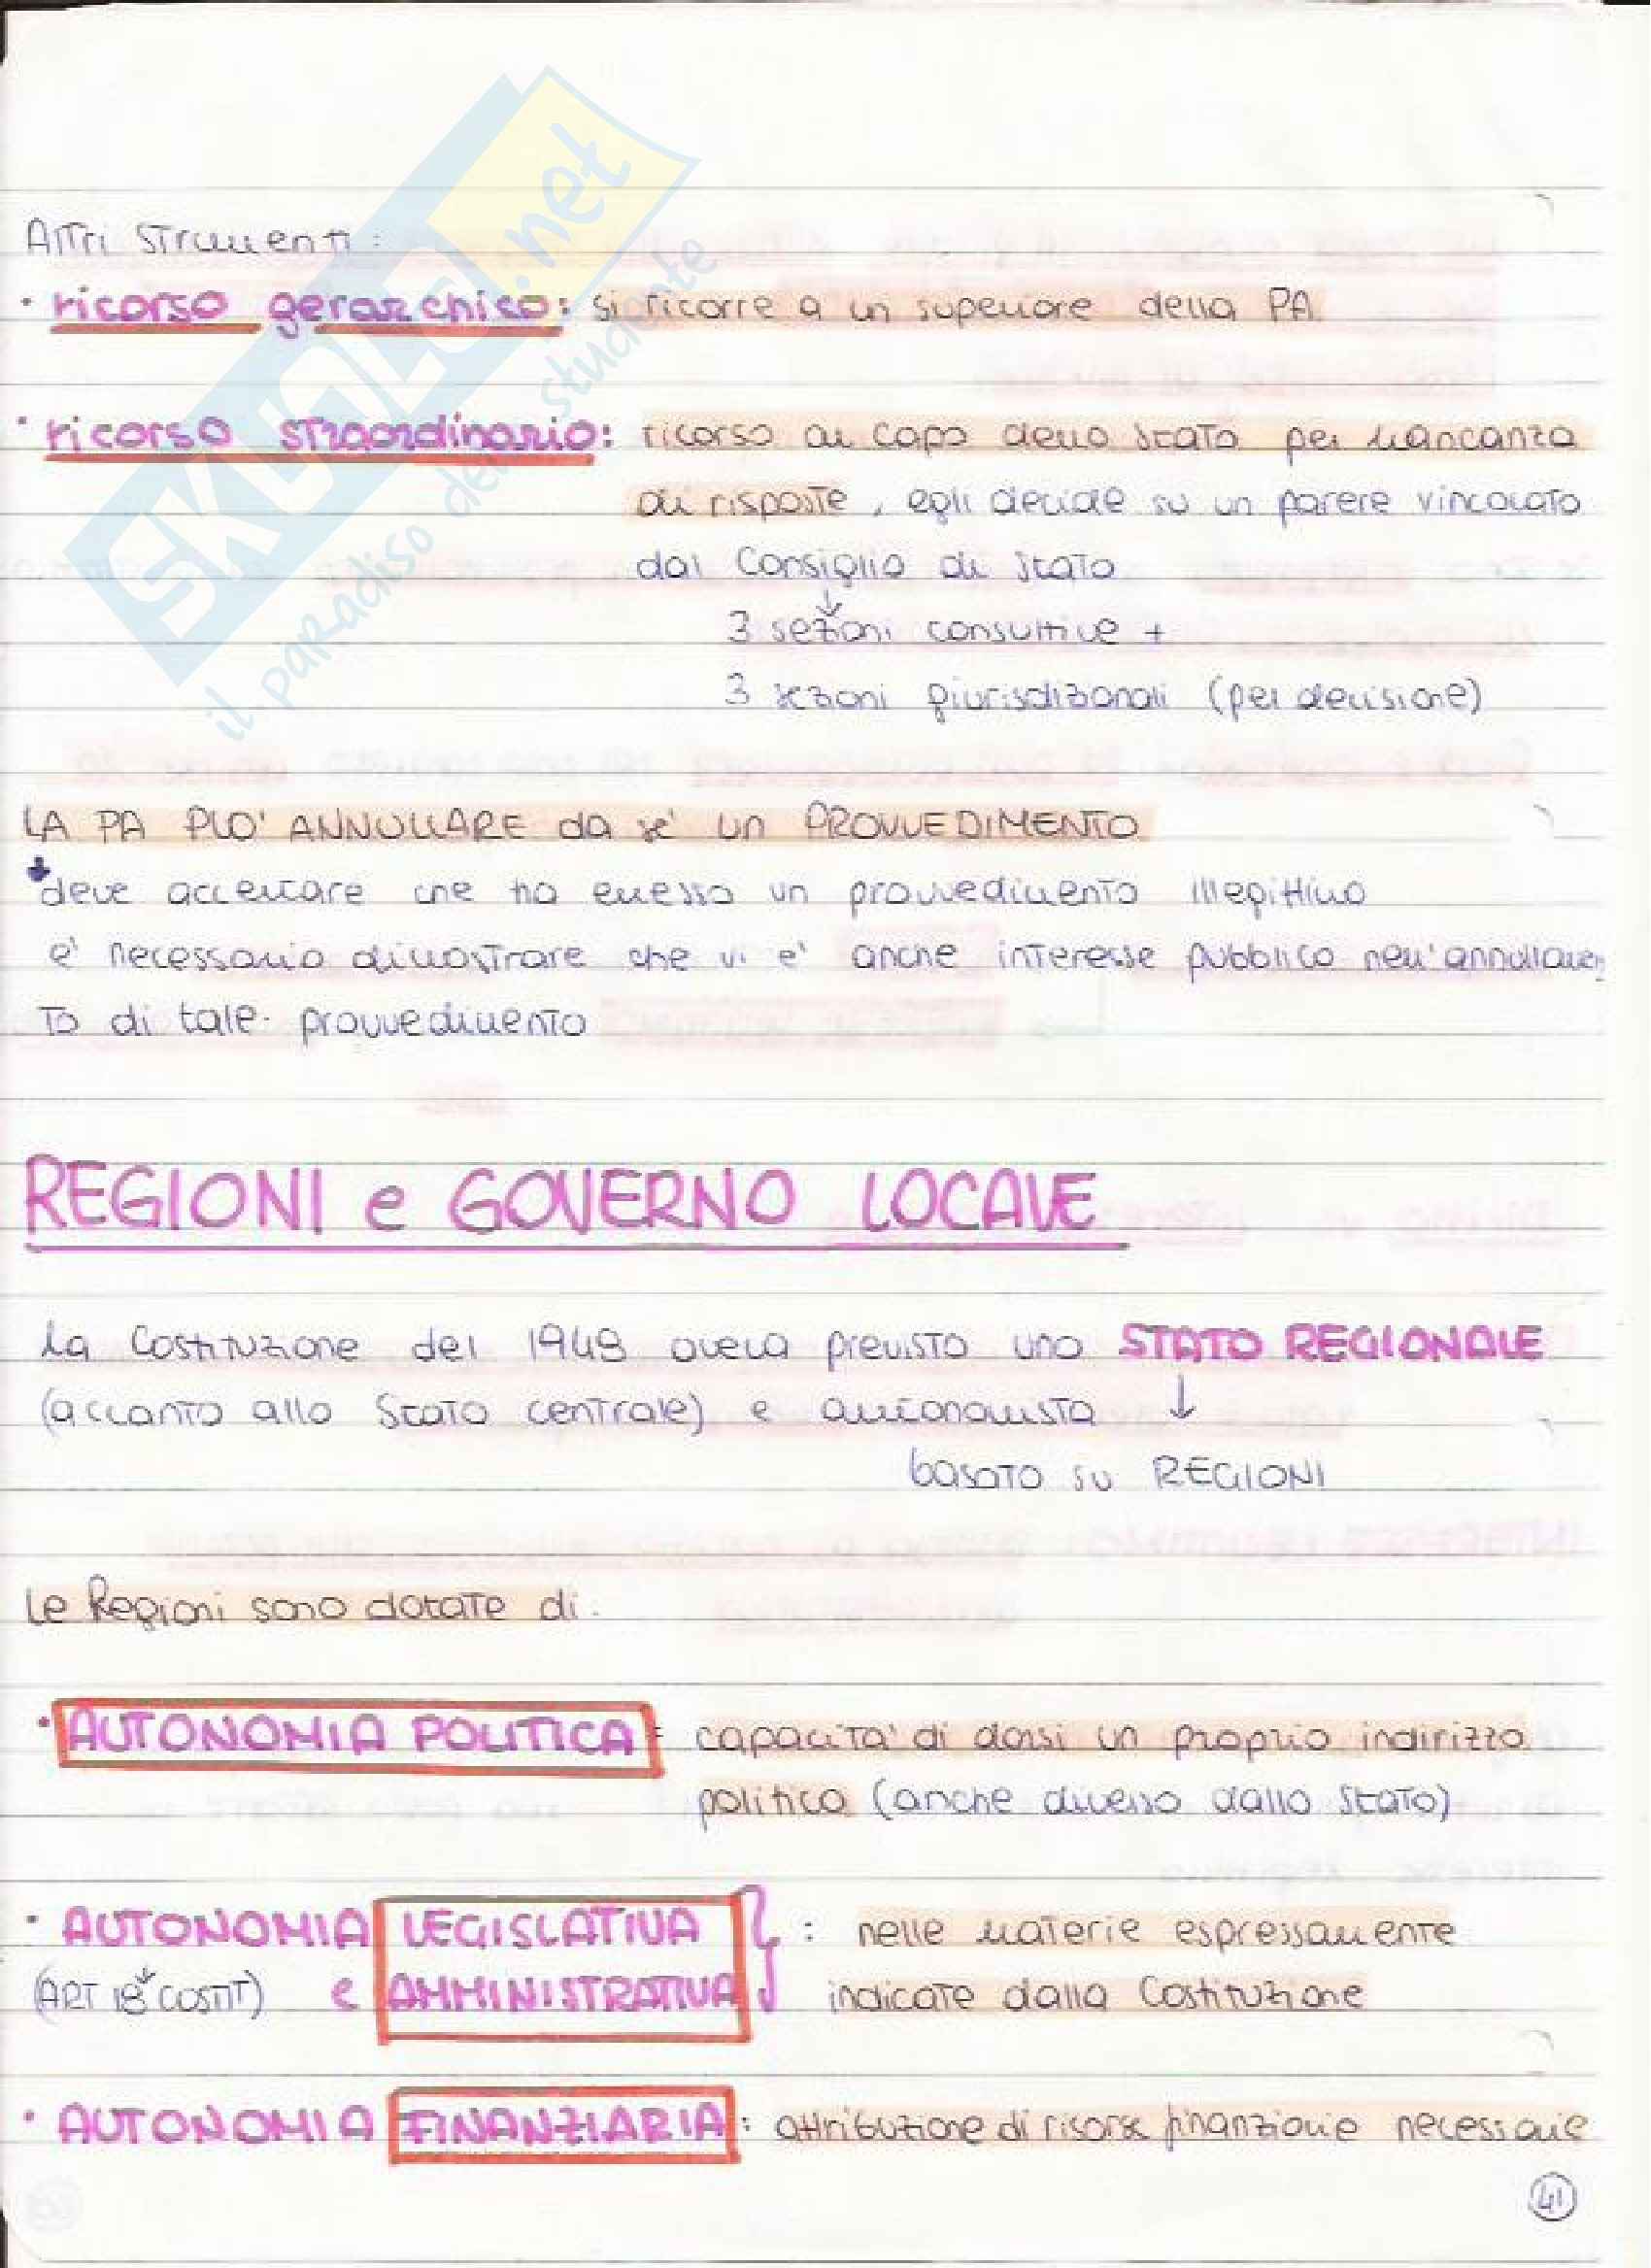 Altri strumenti:
• ricorso gerarchico: si ricorre a un superiore della PA
• ricorso straordinario: ricorso al capo dello Stato per mancanza
di risposte, egli decide su un parere vincolato
dal Consiglio di Stato
↓
3 sezioni consultive +
3 sezioni giurisdizionali (per decisione)
LA PA PUO' ANNULLARE da se' un PROVVEDIMENTO
deve accertare che ha emesso un provvedimento illegittimo
e' necessario dimostrare che vi e' anche interesse pubblico nell'annullamen
to di tale provvedimento
REGIONI e GOVERNO LOCALE
La Costituzione del 1948 aveva previsto uno STATO REGIONALE
(accanto allo Stato centrale) e autonomista ↓
basato su REGIONI
Le Regioni sono dotate di:
• AUTONOMIA POLITICA: capacita' di darsi un proprio indirizzo
politico (anche diverso dallo Stato)
• AUTONOMIA LEGISLATIVA : nelle materie espressamente
(ART 18 COSTIT) e AMMINISTRATIVA indicate dalla Costituzione
• AUTONOMIA FINANZIARIA: attribuzione di risorse finanziarie necessarie
41
SKUOLA.net
il paradiso dello studente